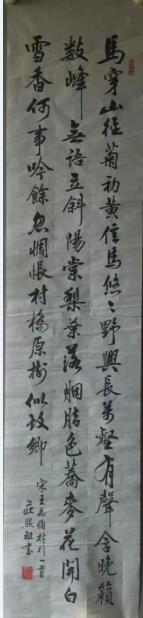 馬穿山徑菊初黃信馬悠々野興長萬壑有聲含晚籟
數峰無語立斜陽棠梨葉落胭脂色蕎麥花開白
雪香何事吟餘忽惆悵村橋原樹似故鄉
宋王禹偁村行一首
莊熙祖書